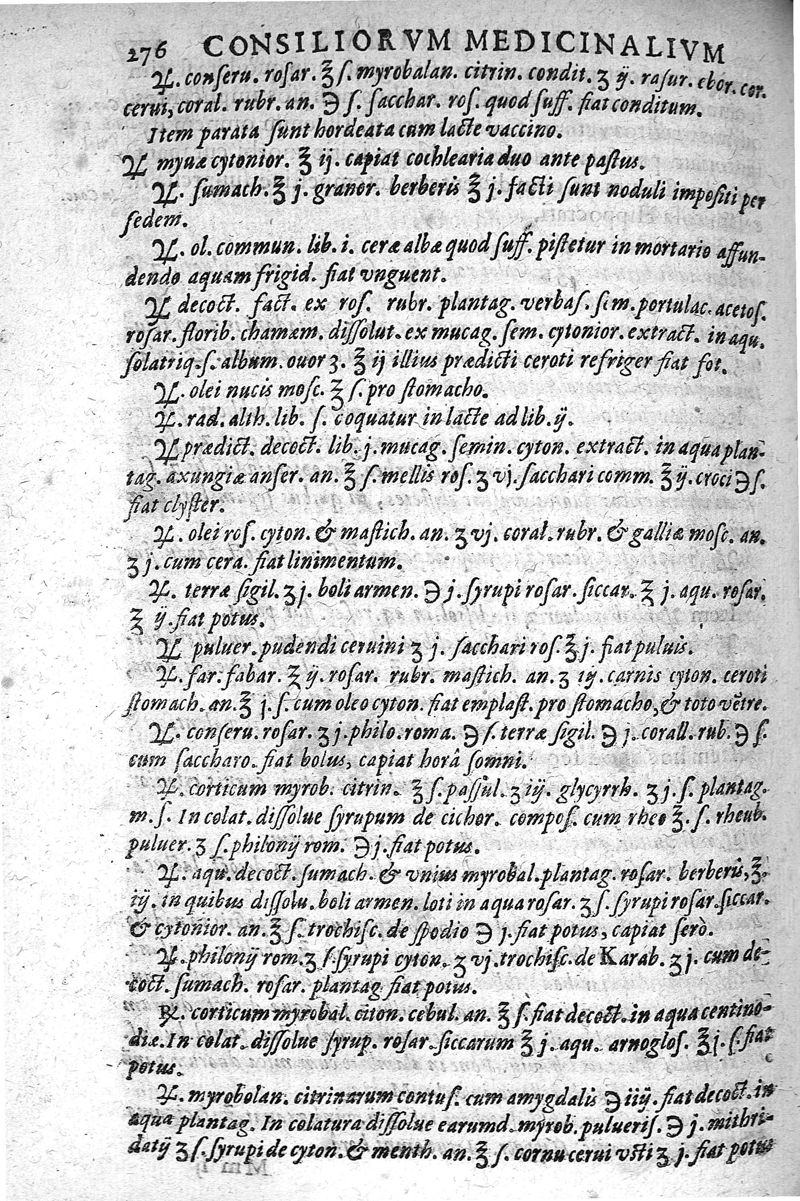 276 CONSILIORVM MEDICINALIVM
℞. conseru. rosar. ℥ ſ. myrobalan. citrin. condit. ʒ ij. rasur. ebor. cor.
cerui, coral. rubr. an. ℈ ſ. sacchar. ros. quod suff. fiat conditum.
Item parata sunt hordeata cum lacte vaccino.
℞ myuæ cytonior. ℥ ij. capiat cochlearia duo ante pastus.
℞. sumach. ℥ j. granor. berberis ℥ j. facti sunt noduli impositi per
sedem.
℞. ol. commun. lib. i. ceræ albæ quod suff. pistetur in mortario affun-
dendo aquam frigid. fiat vnguent.
℞ decoct. fact. ex ros. rubr. plantag. verbas. sem. portulac. acetos.
rosar. florib. chamæm. dissolut. ex mucag. sem. cytonior. extract. in aqu.
solatriq. s. album. ouor 3. ℥ ij illius prædicti ceroti refriger fiat fot.
℞. olei nucis mosc. ℥ ſ. pro stomacho.
℞. rad. alth. lib. ſ. coquatur in lacte ad lib. ij.
℞ prædict. decoct. lib. j. mucag. semin. cyton. extract. in aqua plan-
tag. axungiæ anser. an. ℥ ſ. mellis ros. ʒ vj. sacchari comm. ℥ ij. croci ℈ ſ.
fiat clyster.
℞. olei ros. cyton. & mastich. an. ʒ vj. coral. rubr. & galliæ mosc. an.
ʒ j. cum cera. fiat linimentum.
℞. terræ sigil. ʒ j. boli armen. ℈ j. syrupi rosar. siccar. ℥ j. aqu. rosar.
℥ ij. fiat potus.
℞ puluer. pudendi ceruini ʒ j. sacchari ros. ℥ j. fiat puluis.
℞. far. fabar. ℥ ij. rosar. rubr. mastich. an. ʒ iij. carnis cyton. ceroti
stomach. an. ℥ j. ſ. cum oleo cyton. fiat emplast. pro stomacho, & toto vẽtre.
℞. conseru. rosar. ʒ j. philo. roma. ℈ ſ. terræ sigil. ℈ j. corall. rub. ℈ ſ.
cum saccharo. fiat bolus, capiat horâ somni.
℞. corticum myrob. citrin. ℥ ſ. passul. ʒ ij. glycyrrh. ʒ j. ſ. plantag.
m. ſ. In colat. dissolue syrupum de cichor. compos. cum rheo ℥. ſ. rheub.
puluer. ʒ ſ. philonij rom. ℈ j. fiat potus.
℞. aqu. decoct. sumach. & vnius myrobal. plantag. rosar. berberis, ℥.
iij. in quibus dissolu. boli armen. loti in aqua rosar. ʒ ſ. syrupi rosar. siccar.
& cytonior. an. ℥ ſ. trochisc. de spodio ℈ j. fiat potus, capiat serò.
℞. philonij rom. ʒ ſ. syrupi cyton. ʒ vj. trochisc. de Karab. ʒ j. cum de-
coct. sumach. rosar. plantag. fiat potus.
℞. corticum myrobal. citon. cebul. an. ℥ ſ. fiat decoct. in aqua centino-
diæ. In colat. dissolue syrup. rosar. siccarum ℥ j. aqu. arnoglos. ℥ j. ſ. fiat
potus.
℞. myrobolan. citrinarum contus. cum amygdalis ℈ iiij. fiat decoct. in
aqua plantag. In colatura dissolue earumd. myrob. pulueris. ℈ j. mithri-
datij ʒ ſ. syrupi de cyton. & menth. an. ℥ ſ. cornu cerui vsti ʒ j. fiat potus